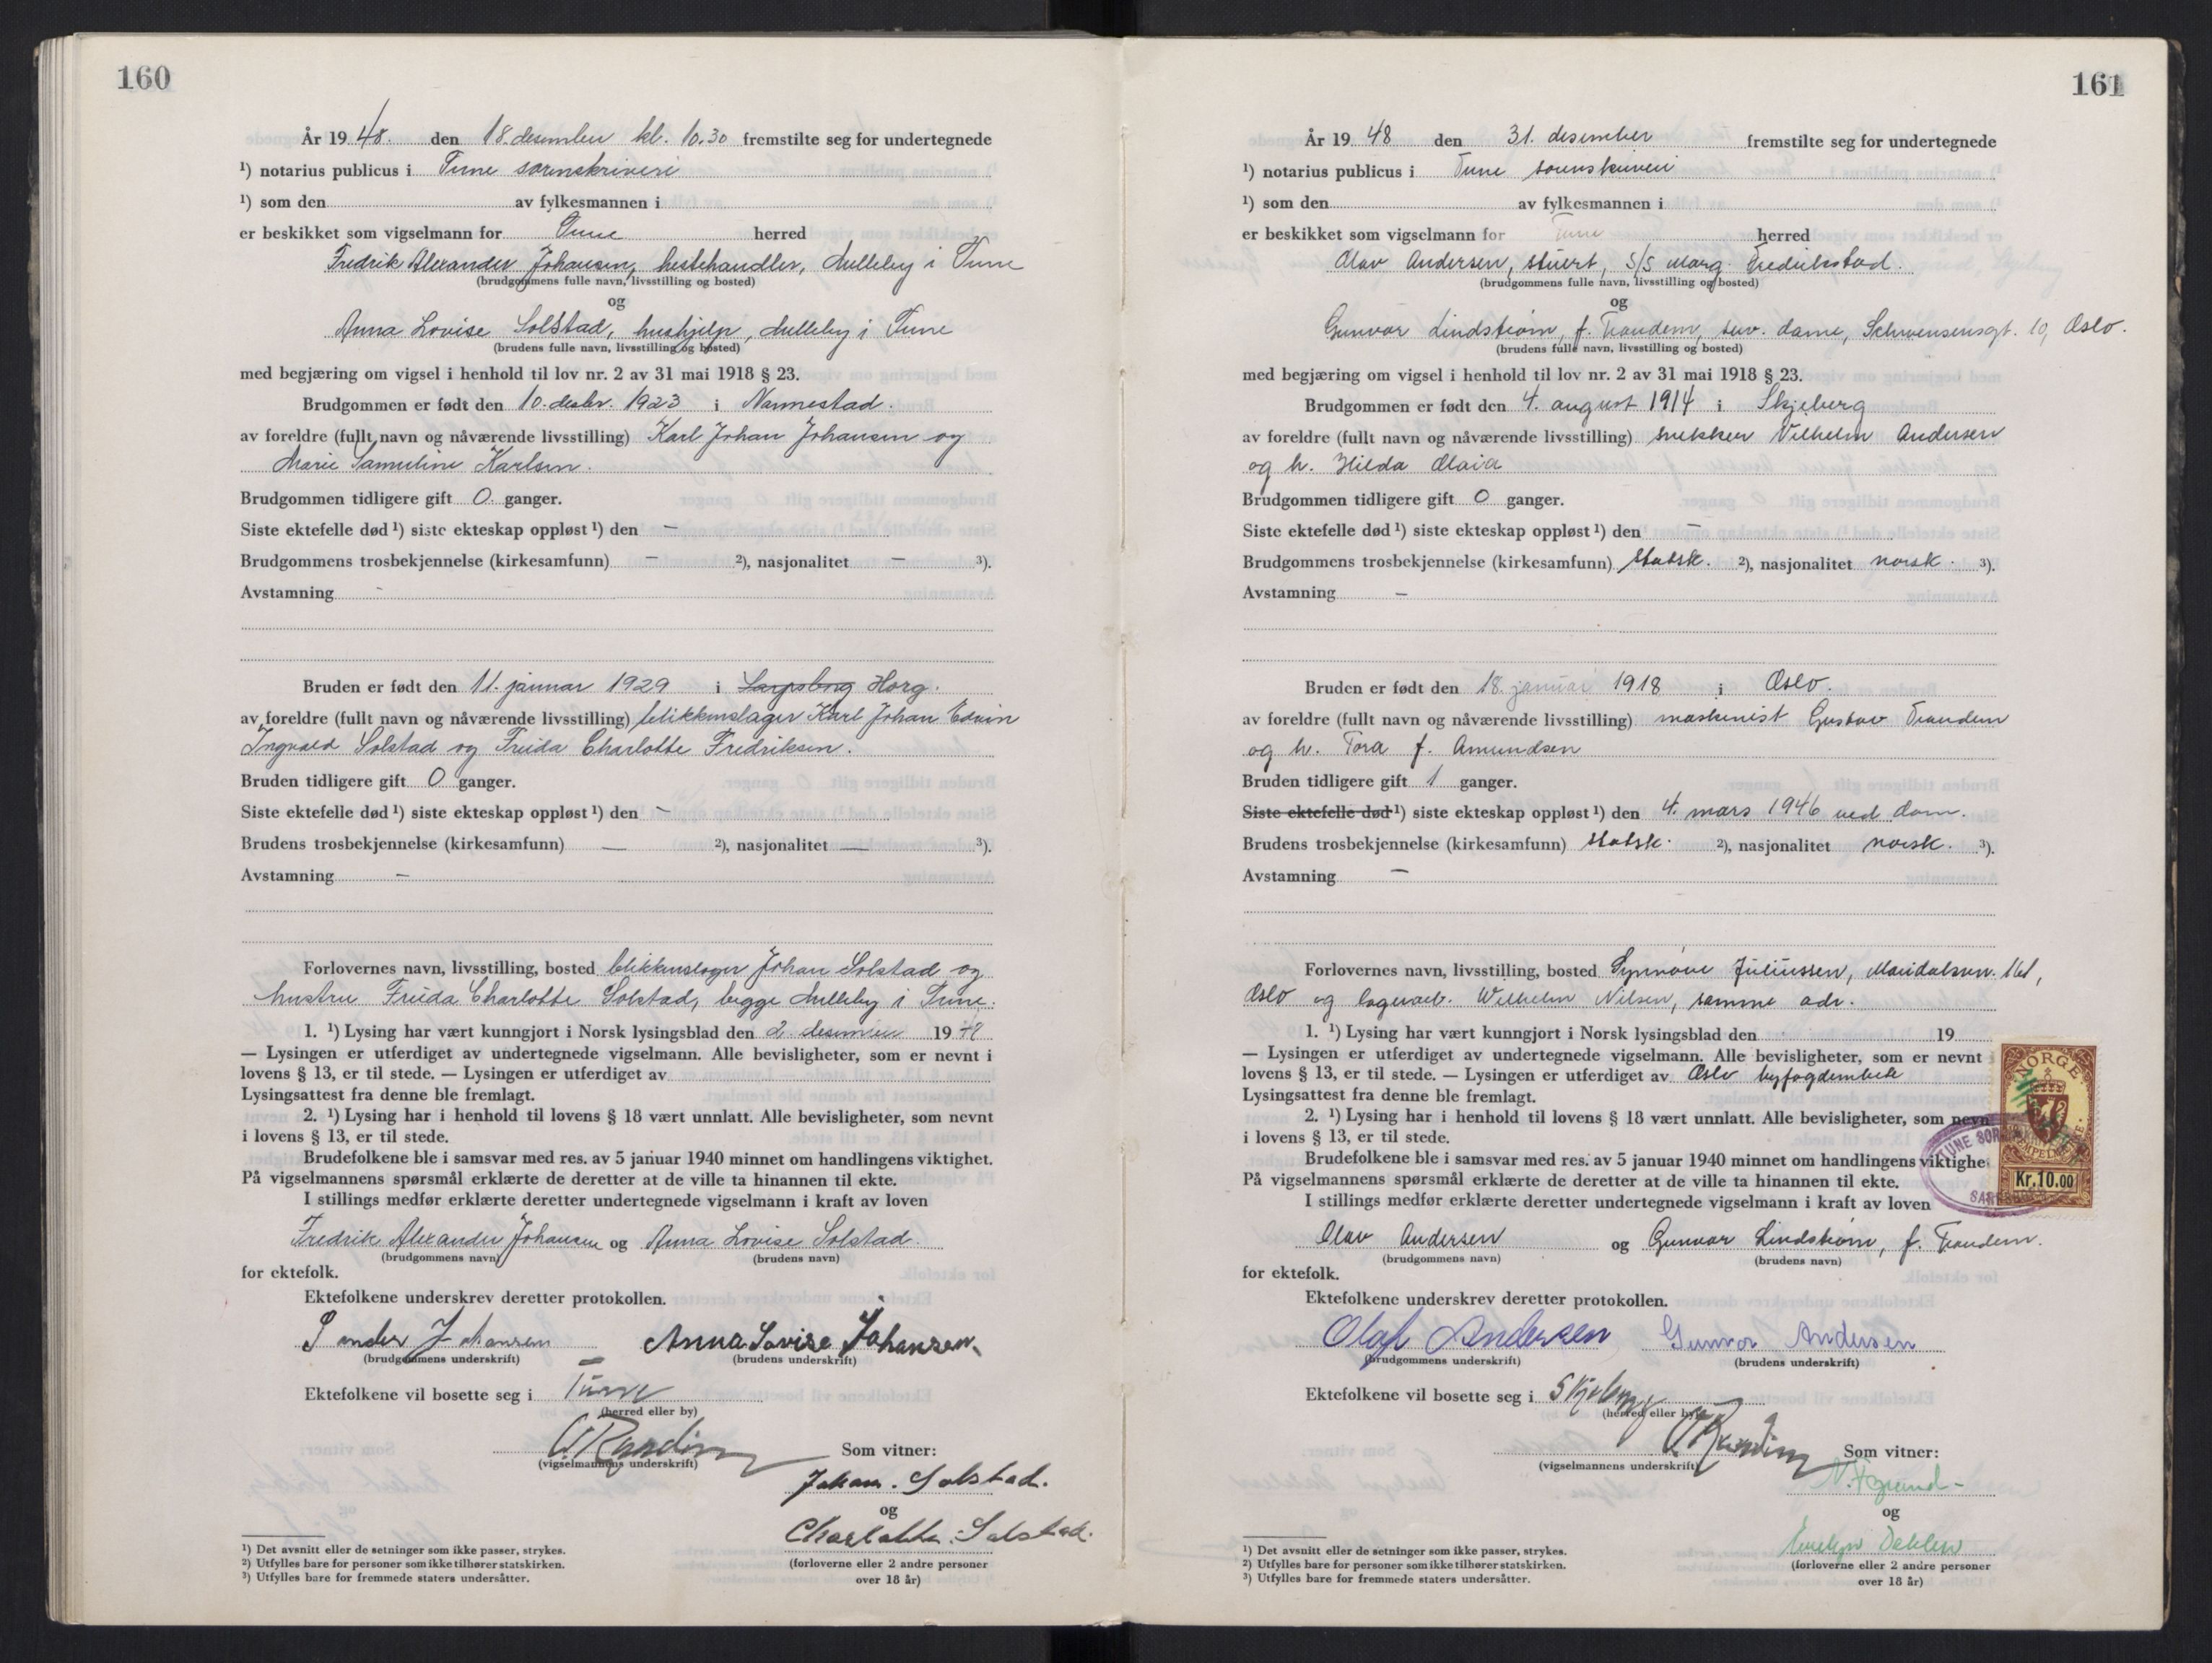 160
År 19 48. den 18. desember kl. 10.30 fremstilte seg for undertegnede
¹) notarius publicus i Tune sorenskriveri
¹) som den av fylkesmannen i
er beskikket som vigselmann for Tune herred
Fredrik Alexander Johansen, hestehandler, Hulleby i Tune
(brudgommens fulle navn, livsstilling og bosted)
og
Anna Lovise Solstad, hushjelp, Hulleby i Tune
(brudens fulle navn, livsstilling og bosted)
med begjæring om vigsel i henhold til lov nr. 2 av 31 mai 1918 § 23.
Brudgommen er født den 10. desbr. 1923 i Nannestad.
av foreldre (fullt navn og nåværende livsstilling) Karl Johan Johansen og
Marie Samuline Karlsen.
Brudgommen tidligere gift 0. ganger.
Siste ektefelle død ¹) siste ekteskap oppløst ¹) den –
Brudgommens trosbekjennelse (kirkesamfunn) – ²), nasjonalitet – ³).
Avstamning -
Bruden er født den 11. januar 1929 i Sarpsborg Horg.
av foreldre (fullt navn og nåværende livsstilling) blikkenslager Karl Johan Edvin
Ingvald Solstad og Frida Charlotte Fredriksen.
Bruden tidligere gift 0 ganger.
Siste ektefelle død ¹) siste ekteskap oppløst ¹) den –
Brudens trosbekjennelse (kirkesamfunn) — ²), nasjonalitet — ³).
Avstamning –
Forlovernes navn, livsstilling, bosted blikkenslager Johan Solstad og
hustru Frida Charlotte Solstad, begge Hulleby i Tune.
1. ¹) Lysing har vært kunngjort i Norsk lysingsblad den 2. desember 19 48
— Lysingen er utferdiget av undertegnede vigselmann. Alle bevisligheter, som er nevnt i
lovens § 13, er til stede. — Lysingen er utferdiget av
Lysingsattest fra denne ble fremlagt.
2. ¹) Lysing har i henhold til lovens § 18 vært unnlatt. Alle bevisligheter, som nevnt
i lovens § 13, er til stede.
Brudefolkene ble i samsvar med res. av 5 januar 1940 minnet om handlingens viktighet.
På vigselmannens spørsmål erklærte de deretter at de ville ta hinannen til ekte.
I stillings medfør erklærte deretter undertegnede vigselmann i kraft av loven
Fredrik Alexander Johansen og Anna Lovise Solstad.
(brudgommens navn) (brudens navn)
for ektefolk.
Ektefolkene underskrev deretter protokollen.
Sander Johansen Anna Lovise Johansen.
(brudgommens underskrift) (brudens underskrift)
Ektefolkene vil bosette seg i Tune
(herred eller by)
Som vitner:
(vigselmannens underskrift)
Johan. Solstad.
og
Charlotte. Solstad.
(forloverne eller 2 andre personer
over 18 år)
¹) Det avsnitt eller de setninger som ikke passer, strykes.
²) Utfylles bare for personer som ikke tilhører statskirken.
³) Utfylles bare for fremmede staters undersåtter.
161
År 19 48 den 31. desember fremstilte seg for undertegnede
¹) notarius publicus i Tune sorenskriveri
¹) som den av fylkesmannen i
er beskikket som vigselmann for Tune herred
Olav Andersen, stuert, S/S Marg. Fredrikstad.
(brudgommens fulle navn, livsstilling og bosted)
og
Gunvor Lindstrøm, f. Trandem, serv. dame, Schwensensgt. 10, Oslo.
(brudens fulle navn, livsstilling og bosted)
med begjæring om vigsel i henhold til lov nr. 2 av 31 mai 1918 § 23.
Brudgommen er født den 4. august 1914 i Skjeberg
av foreldre (fullt navn og nåværende livsstilling) snekker Vilhelm Andersen
og h. Hilda Maia
Brudgommen tidligere gift 0 ganger.
Siste ektefelle død ¹) siste ekteskap oppløst ¹) den –
Brudgommens trosbekjennelse (kirkesamfunn) statsk. ²), nasjonalitet norsk. ³).
Avstamning –
Bruden er født den 18. januar 1918 i Oslo.
av foreldre (fullt navn og nåværende livsstilling) maskinist Gustav Trandem
og h. Tora f. Amundsen
Bruden tidligere gift 1 ganger.
Siste ektefelle død ¹) siste ekteskap oppløst ¹) den 4. mars 1946 ved dom.
Brudens trosbekjennelse (kirkesamfunn) statsk. ²), nasjonalitet norsk. ³).
Avstamning –
Forlovernes navn, livsstilling, bosted Synnøve Juliussen, Maridalsvn. 161,
Oslo og lagerarb. Wilhelm Nilsen, samme adr.
1. ¹) Lysing har vært kunngjort i Norsk lysingsblad den 19
— Lysingen er utferdiget av undertegnede vigselmann. Alle bevisligheter, som er nevnt
lovens § 13, er til stede. — Lysingen er utferdiget av Oslo byfogdembete
Lysingsattest fra denne ble fremlagt.
2. ¹) Lysing har i henhold til lovens § 18 vært unnlatt. Alle bevisligheter, som nevn
i lovens § 13, er til stede.
Brudefolkene ble i samsvar med res. av 5 januar 1940 minnet om handlingens viktighe
På vigselmannens spørsmål erklærte de deretter at de ville ta hinannen til ekte.
I stillings medfør erklærte deretter undertegnede vigselmann i kraft av loven
NORGE
Kr. 10.00
TUNE SOR
Olav Andersen og Gunvor Lindstrøm, f. Trandem.
(brudgommens navn) (brudens navn)
for ektefolk.
Ektefolkene underskrev deretter protokollen.
Olaf Andersen Gunvor Andersen
(brudgommens underskrift) (brudens underskrift)
Ektefolkene vil bosette seg i Skjeberg
(herred eller by)
Som vitner:
(vigselmannens underskrift)
og
(forloverne eller 2 andre personer
over 18 år)
¹) Det avsnitt eller de setninger som ikke passer, strykes.
²) Utfylles bare for personer som ikke tilhører statskirken.
³) Utfylles bare for fremmede staters undersåtter.